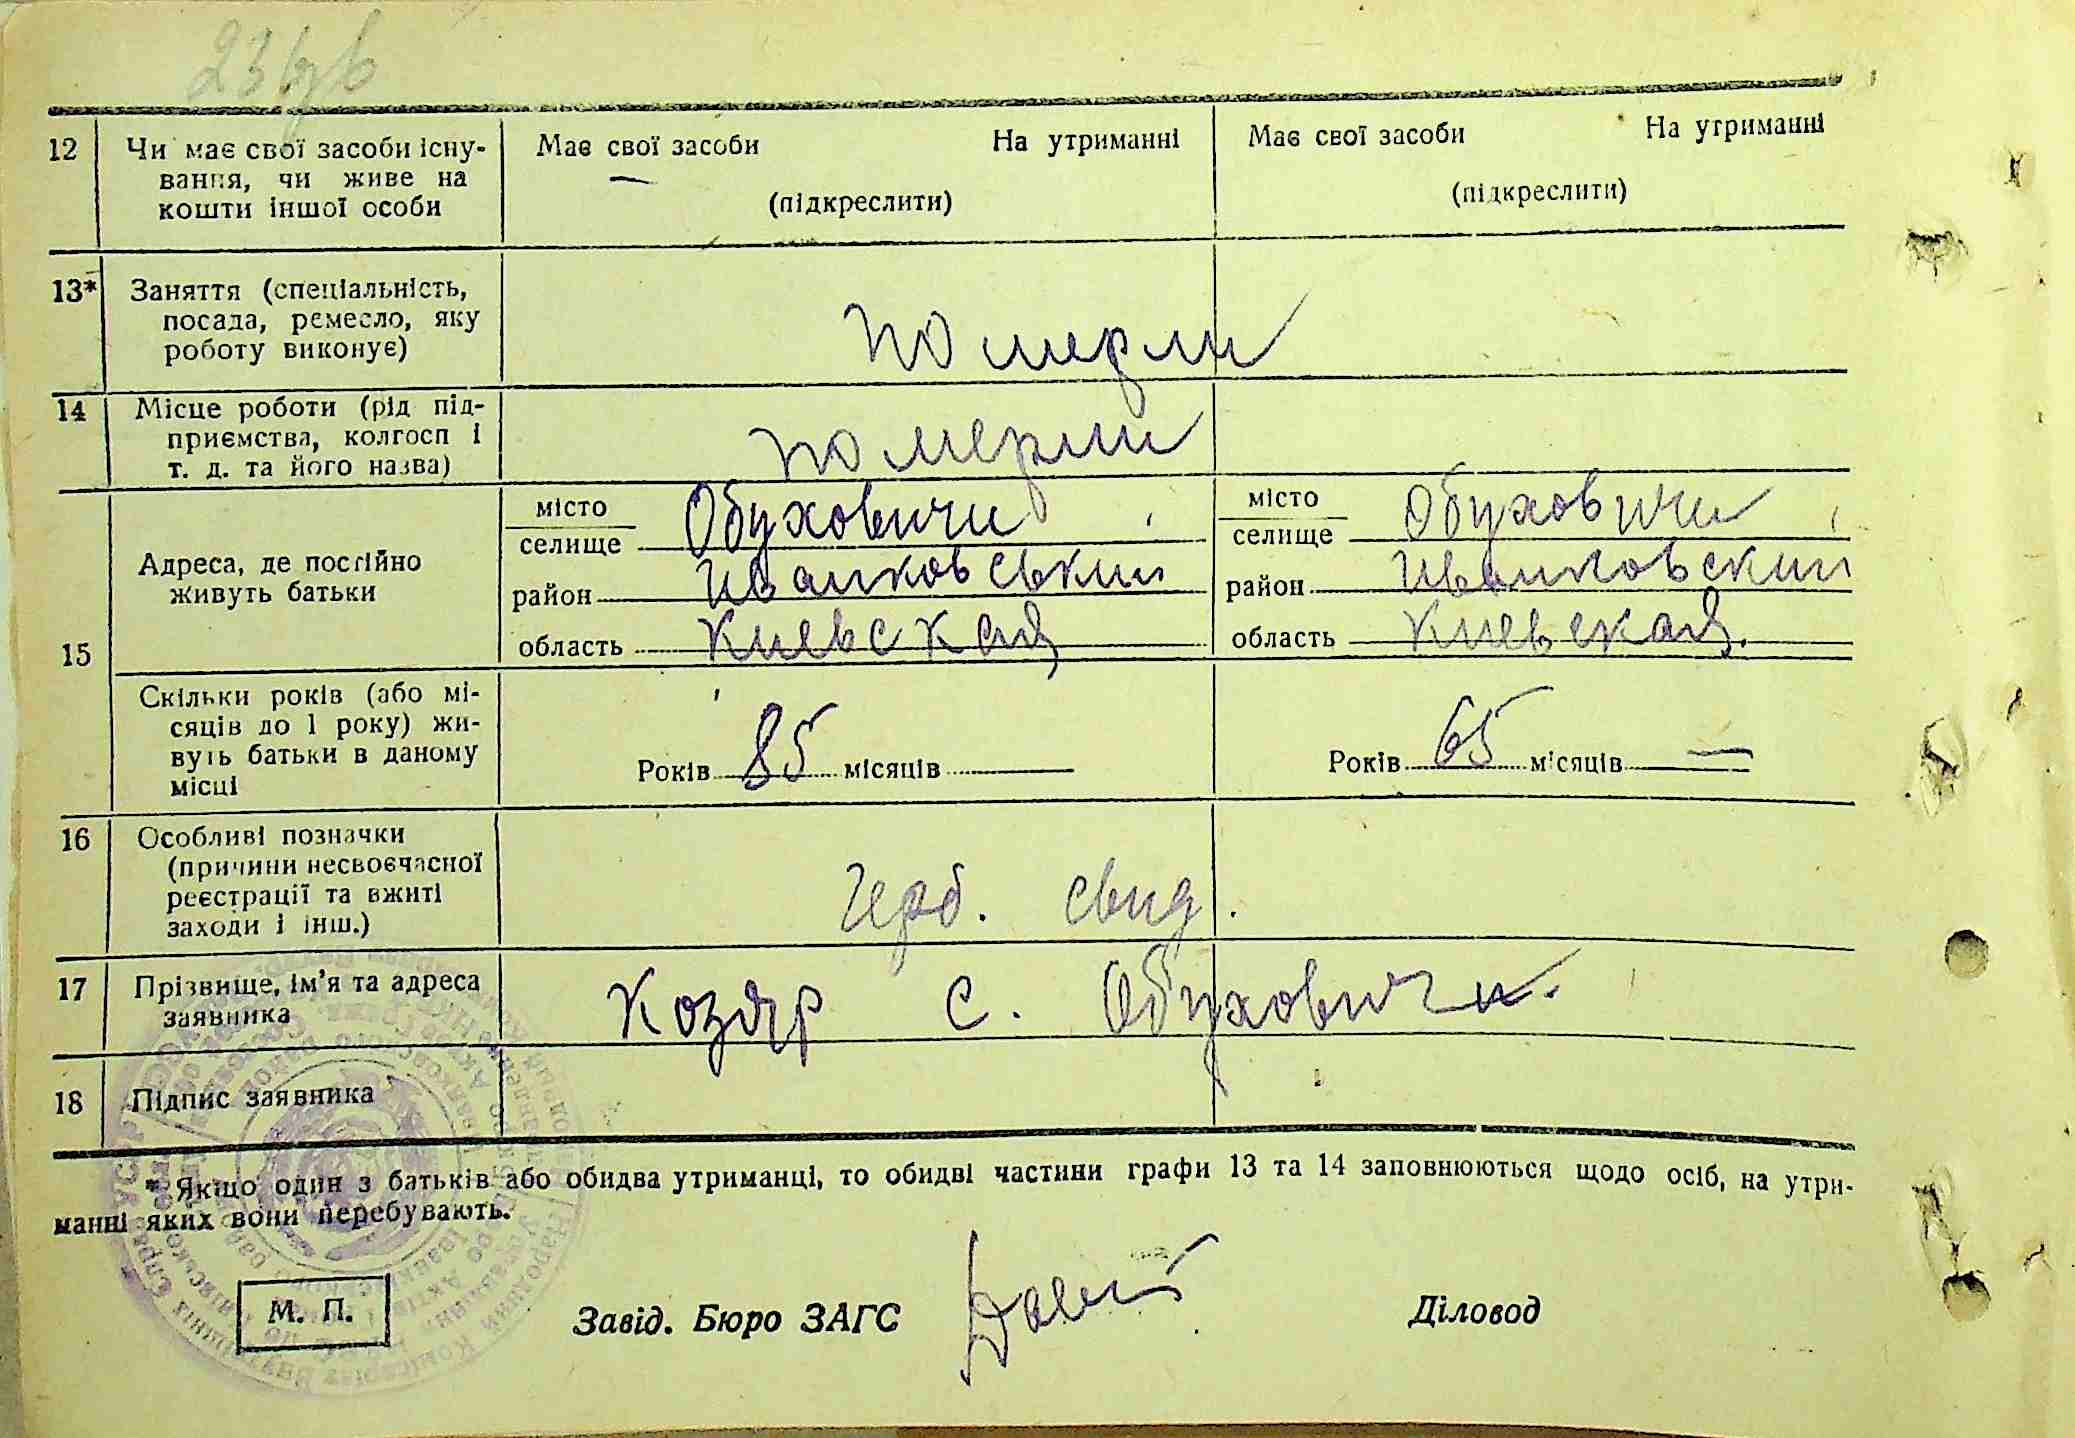 12 Чи має свої засоби існу-
вання, чи живе на
кошти іншої особи
Має свої засоби На утриманні
(підкреслити)
Має свої засоби На утриманні
(підкреслити)
13* Заняття (спеціальність,
посада, ремесло, яку
роботу виконує)
померли
14 Місце роботи (рід під-
приємства, колгосп і
т. д. та його назва)
померли
15 Адреса, де постійно
живуть батьки
місто
селище Обуховичи
район Иванковський
область Киевская
місто
селище Обуховичи
район Иванковский
область Киевская.
Скільки років (або мі-
сяців до 1 року) жи-
вуть батьки в даному
місці
Років 85 місяців
Років 65 місяців —
16 Особливі позначки
(причини несвоєчасної
реєстрації та вжиті
заходи і інш.)
герб. свид.
17 Прізвище, ім'я та адреса
заявника
Козяр с. Обуховичи.
18 Підпис заявника
* Якщо один з батьків або обидва утриманці, то обидві частини графи 13 та 14 заповнюються щодо осіб, на утри-
манні яких вони перебувають.
М. П.
Завід. Бюро ЗАГС
Діловод